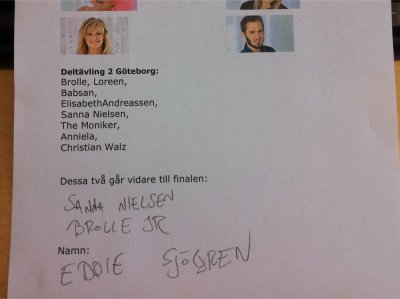 Deltävling 2 Göteborg:
Brolle, Loreen,
Babsan,
ElisabethAndreassen,
Sanna Nielsen,
The Moniker,
Anniela,
Christian Walz
Dessa två går vidare till finalen:
SANNA NIELSEN
BROLLE JR
Namn:
EDDIE SJÖGREN